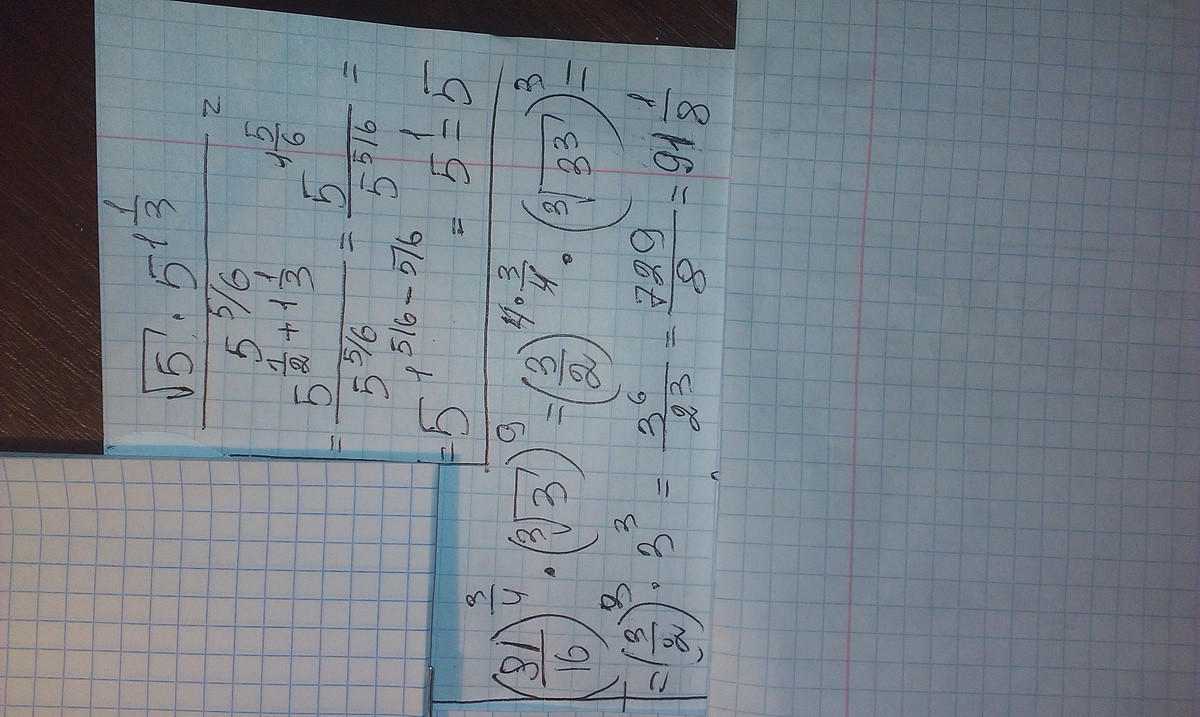 √5 · 5^{1 1/3} / 5^{5/6} =
= 5^{1/2 + 1 1/3} / 5^{5/6} = 5^{1 5/6} / 5^{5/6} =
= 5^{1 5/6 - 5/6} = 5^1 = 5
(81/16)^{3/4} · (∛3)^9 = (3/2)^{4 · 3/4} · (∛3^3)^3 =
= (3/2)^3 · 3^3 = 3^6/2^3 = 729/8 = 91 1/8